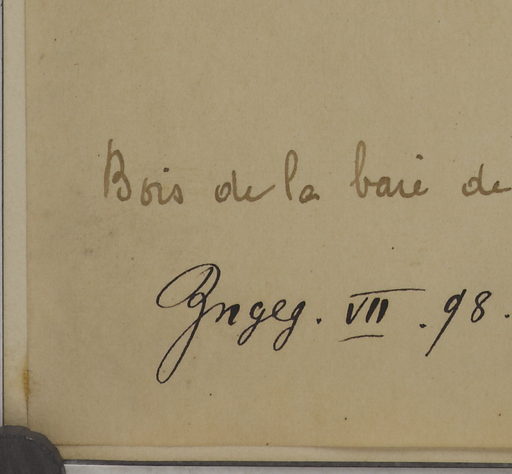 Bois de la baie de
Yngeg. VII . 98 .